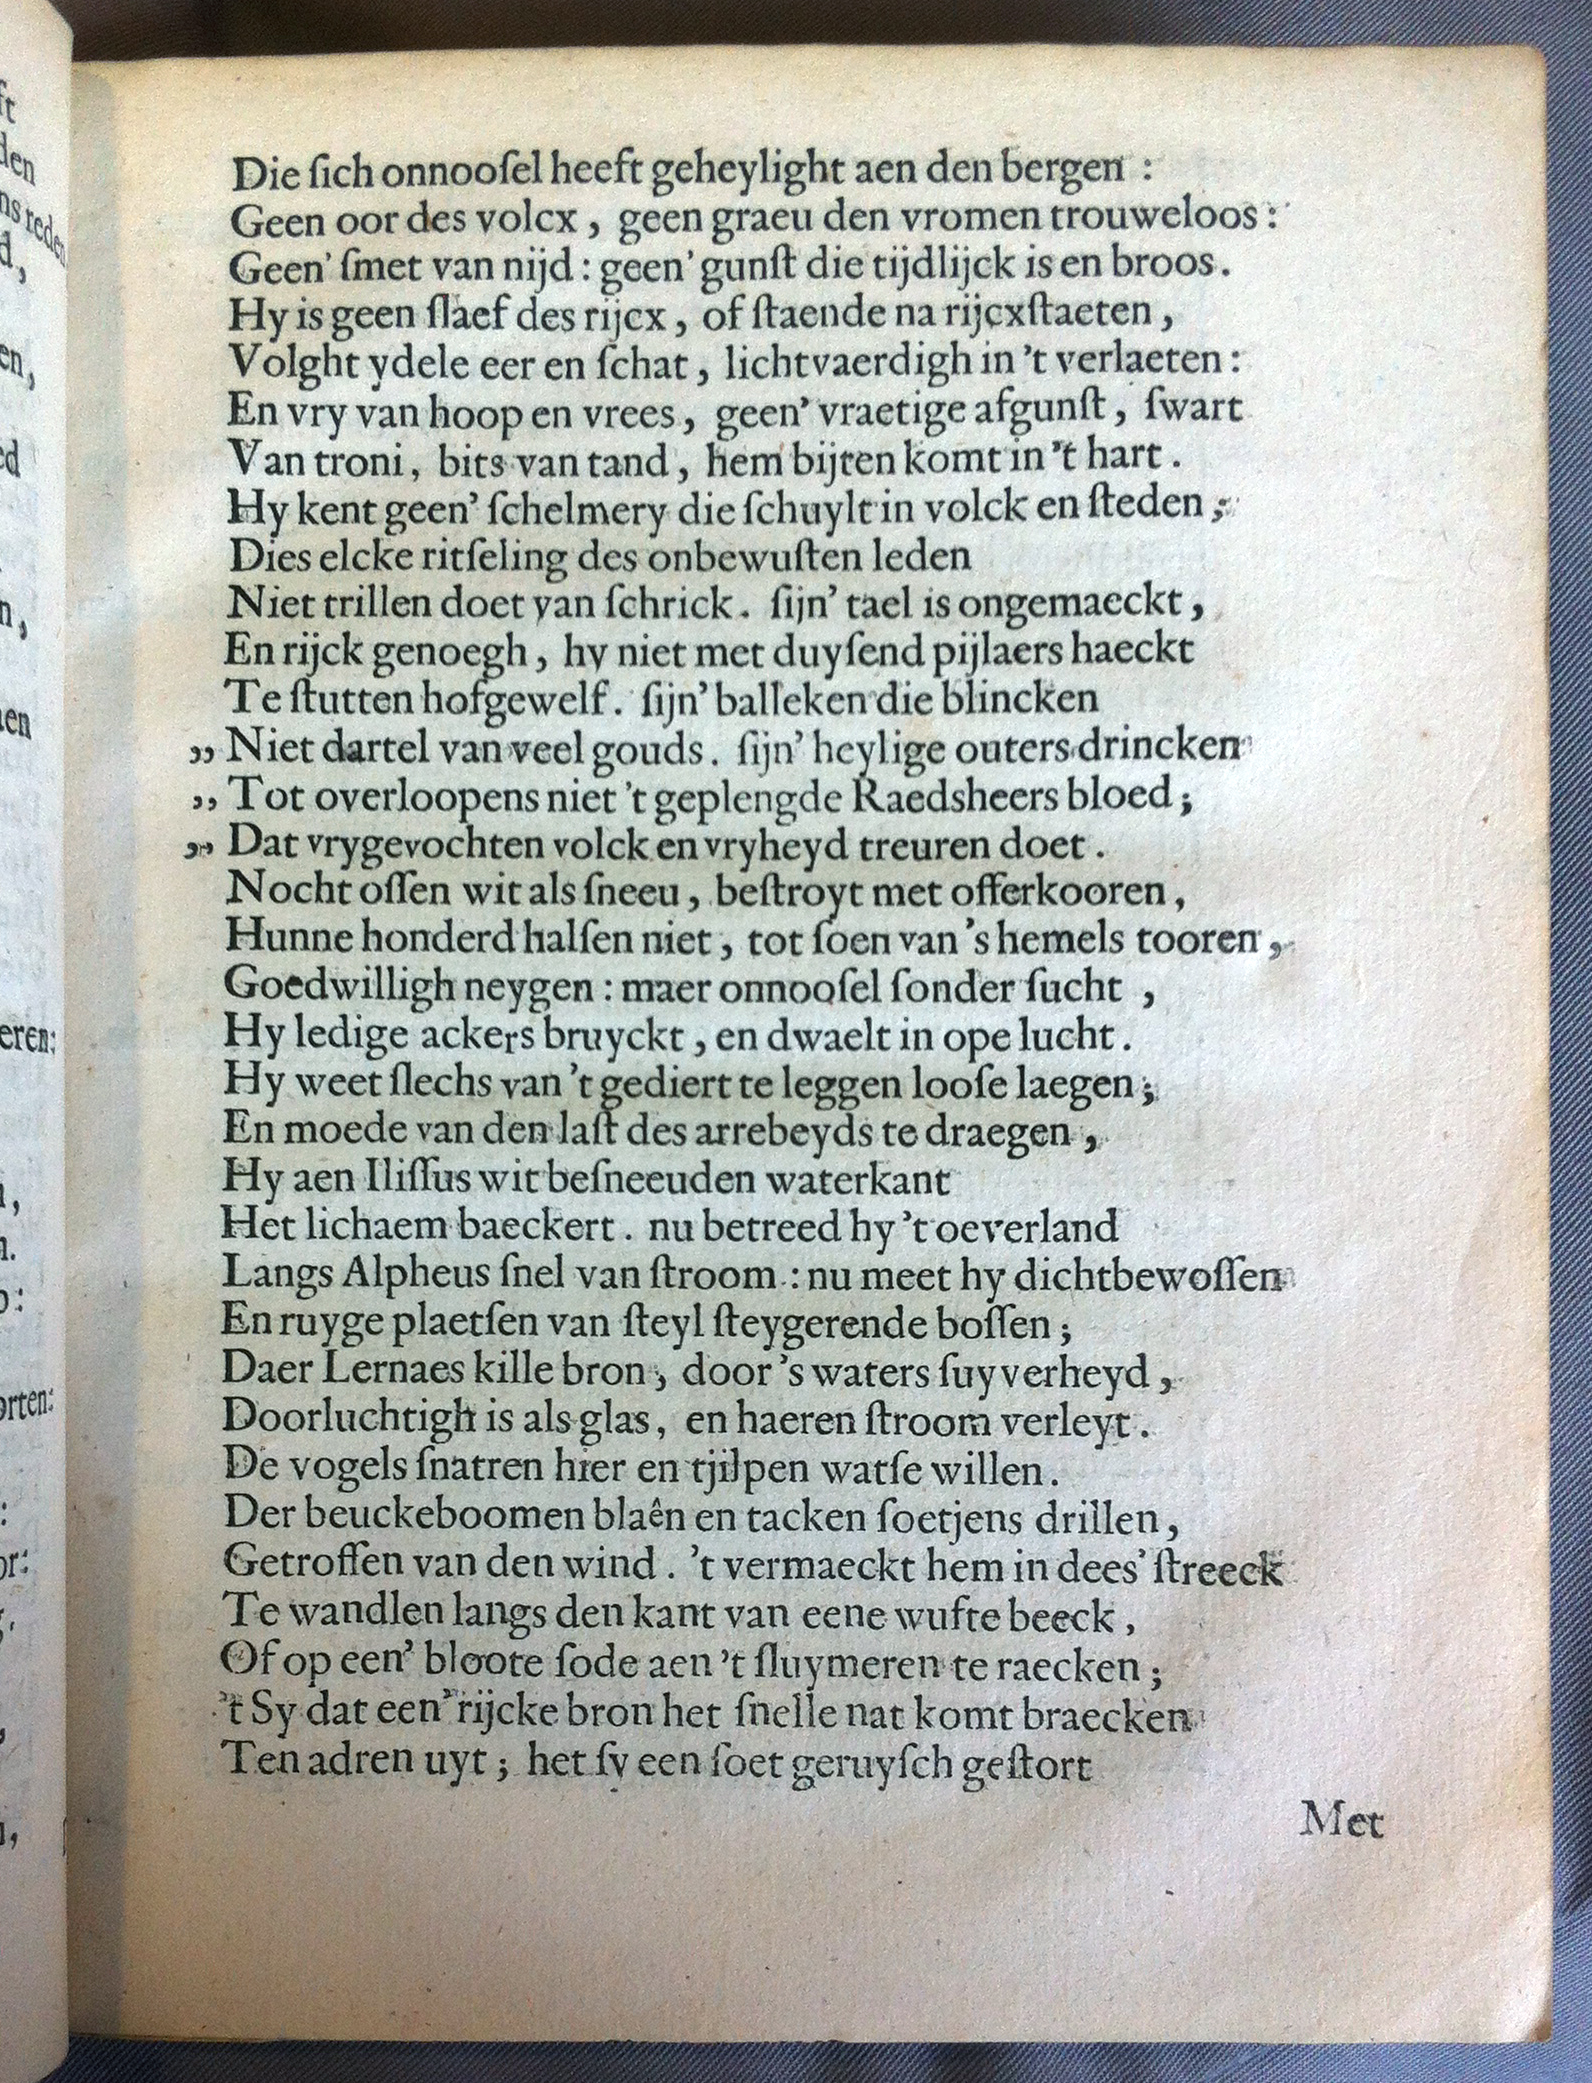 Die ſich onnooſel heeft geheylight aen den bergen :
Geen oor des volcx, geen graeu den vromen trouweloos:
Geen' ſmet van nijd: geen' gunſt die tijdlijck is en broos.
Hy is geen ſlaef des rijcx, of ſtaende na rijcxſtaeten,
Volght ydele eer en ſchat, lichtvaerdigh in 't verlaeten:
En vry van hoop en vrees, geen' vraetige afgunſt, ſwart
Van troni, bits van tand, hem bijten komt in 't hart.
Hy kent geen' ſchelmery die ſchuylt in volck en ſteden;
Dies elcke ritſeling des onbewuſten leden
Niet trillen doet van ſchrick. ſijn' tael is ongemaeckt,
En rijck genoegh, hy niet met duyſend pijlaers haeckt
Te ſtutten hofgewelf. ſijn' balleken die blincken
„ Niet dartel van veel gouds. ſijn' heylige outers drincken
„ Tot overloopens niet 't geplengde Raedsheers bloed;
„ Dat vrygevochten volck en vryheyd treuren doet.
Nocht oſſen wit als ſneeu, beſtroyt met offerkooren,
Hunne honderd halſen niet, tot ſoen van 's hemels tooren,
Goedwilligh neygen: maer onnooſel ſonder ſucht ,
Hy ledige ackers bruyckt, en dwaelt in ope lucht.
Hy weet ſlechs van 't gediert te leggen looſe laegen;
En moede van den laſt des arrebeyds te draegen,
Hy aen Iliſſus wit beſneeuden waterkant
Het lichaem baeckert. nu betreed hy 't oeverland
Langs Alpheus ſnel van ſtroom: nu meet hy dichtbewoſſen
En ruyge plaetſen van ſteyl ſteygerende boſſen;
Daer Lernaes kille bron, door 's waters ſuyverheyd,
Doorluchtigh is als glas, en haeren ſtroom verleyt.
De vogels ſnatren hier en tjilpen watſe willen.
Der beuckeboomen blaên en tacken ſoetjens drillen,
Getroffen van den wind. 't vermaeckt hem in dees' ſtreeck
Te wandlen langs den kant van eene wufte beeck,
Of op een' bloote ſode aen 't ſluymeren te raecken;
't Sy dat een' rijcke bron het ſnelle nat komt braecken
Ten adren uyt; het ſy een ſoet geruyſch geſtort
Met
ft
den
ns reden
d,
en,
ed
n,
nen
eren:
orten:
or: